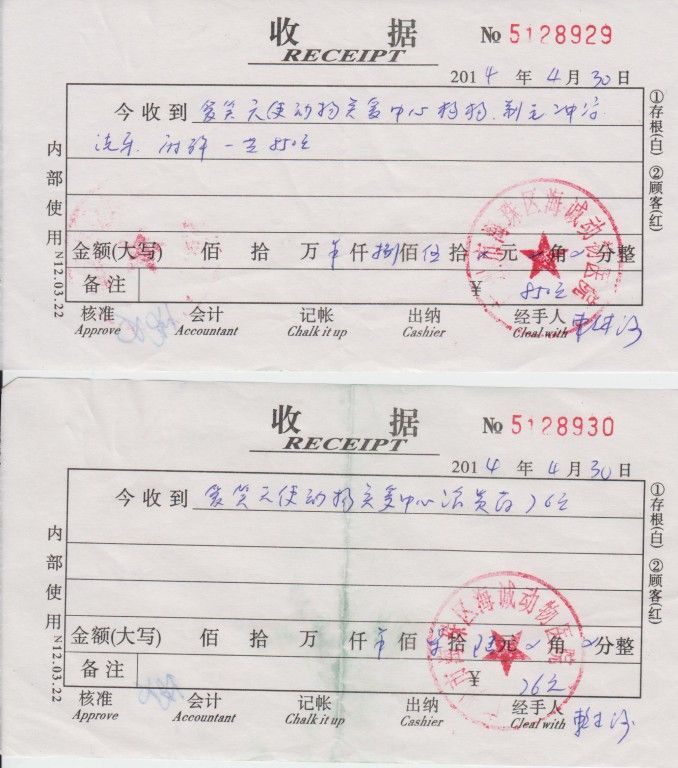 收据
RECEIPT № 5128929
2014 年 4 月 30 日
今收到 爱笑天使动物关爱中心
一共850元
金额(大写) 佰 拾 万 仟 捌 佰 伍 拾 元 角 分整
备注 ¥ 850元
核准 会计 记帐 出纳 经手人
Approve Accountant Chalk it up Cashier Cleal with
内部使用 N12.03.22
①存根(白) ②顾客(红)
海珠区海诚动物医院
收据
RECEIPT № 5128930
2014 年 4 月 30 日
今收到 爱笑天使动物关爱中心
金额(大写) 佰 拾 万 仟 佰 拾 元 角 分整
备注 ¥ 76元
核准 会计 记帐 出纳 经手人
Approve Accountant Chalk it up Cashier Cleal with
内部使用 N12.03.22
①存根(白) ②顾客(红)
珠区海诚动物医院